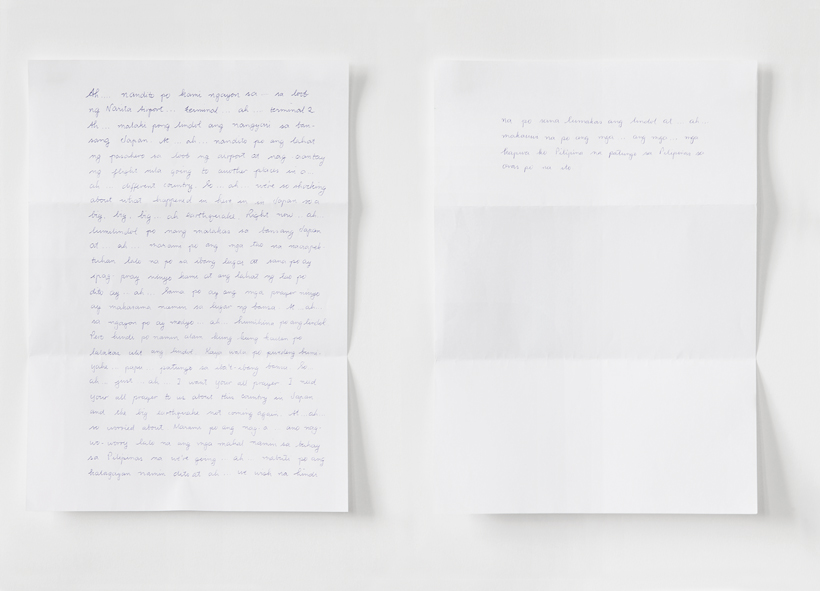 Ah... nandito po kami ngayon sa... sa loob
ng Narita Airport... terminal... ah... terminal 2
Ah... malaki pong lindol ang nangyari sa ban-
sang Japan. At... ah... nandito po ang lahat
ng pasahero sa loob ng airport at nag aantay
ng flight nila going to another places in a...
ah... different country. So... ah... we're so shocking
about what happened in here in in Japan is a
big, big, big... ah earthquake. Right now... ah...
lumalindol po nang malakas sa bansang Japan
at... ah... marami po ang mga tao na
lalo na po sa ibang lugar at sana po ay
ipag-pray ninyo kami at ang lahat ng tao po
dito ay... ah... sana po ay ang mga prayer ninyo
ay makarama namin sa lugar ng bansa. At... ah...
sa ngayon po ay medyo... ah... humihina po ang lindol
Pero hindi po namin alam kung kung kailan po
lalakas ulit ang lindol. Kaya wala po
papa... patungo sa iba't-ibang bansa. So,
ah... just... ah... I want your all prayer I need
your all prayer to us about this country in Japan
and the big earthquake not coming again. At... ah...
so worried about. Marami po ang nag a... are nag-
wo-worry lalo na ang mga mahal namin sa buhay
sa Pilipinas na we're going... ah... mabuti po ang
kalagayan namin dito at ah... we wish na hindi
na po sana lumakas ang lindol at... ah...
makauwi na po ang mga... ang mga... mga
kapwa ko Pilipino na patungo sa Pilipinas at
po na ito